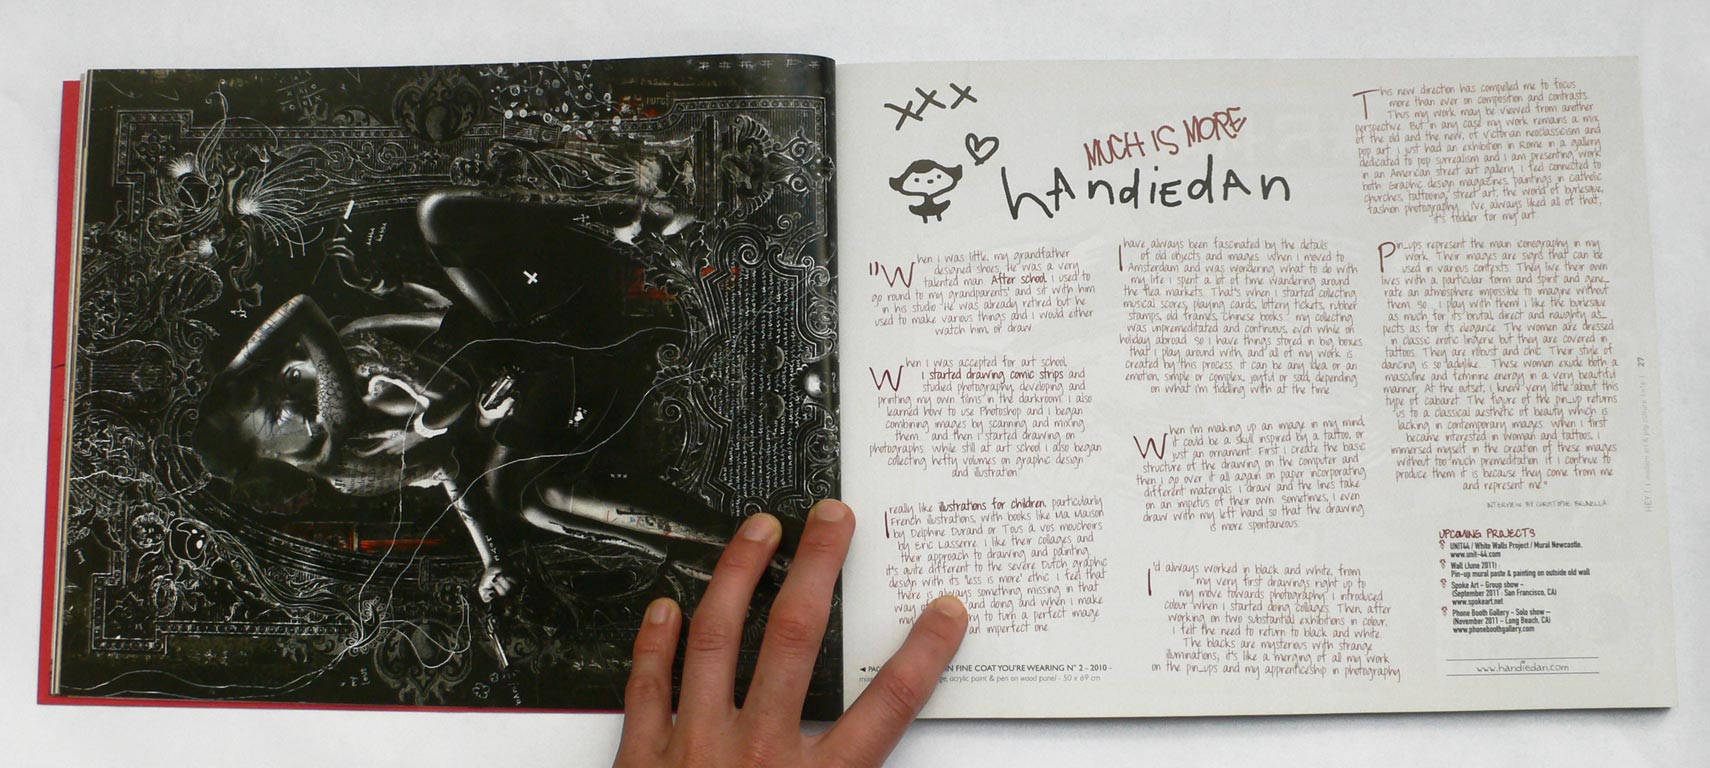 xxx
MUCH IS MORE
hAndiedAn
"When i was little, my grandfather
designed shoes. He was a very
talented man. After school, i used to
go round to my grandparents' and sit with him
in his studio. He was already retired but he
used to make various things and i would either
watch him, or draw.
When i was accepted for art school,
i started drawing comic strips and
studied photography, developing and
printing my own films in the darkroom. i also
learned how to use Photoshop and i began
combining images by scanning and mixing
them... and then i started drawing on
photographs. While still at art school i also began
collecting hefty volumes on graphic design
and illustration.
I really like illustrations for children, particularly
French illustrations, with books like Ma Maison
by Delphine Durand or Tous à vos mouchoirs
by Eric Lasserre. i like their collages and
their approach to drawing and painting.
it's quite different to the severe Dutch graphic
design with its 'less is more' ethic. i feel that
there is always something missing in that
way of and doing and when i make
my to turn a perfect image
an imperfect one.
I have always been fascinated by the details
of old objects and images. when i moved to
Amsterdam and was wondering what to do with
my life i spent a lot of time wandering around
the flea markets. That's when i started collecting
musical scores, playing cards, lottery tickets, rubber
stamps, old frames, Chinese books... my collecting
was unpremeditated and continuous, even while on
holiday abroad. so i have things stored in big boxes
that i play around with, and all of my work is
created by this process. it can be any idea or an
emotion, simple or complex, joyful or sad, depending
on what i'm fiddling with at the time.
When i'm making up an image in my mind,
it could be a skull inspired by a tattoo, or
just an ornament. First i create the basic
structure of the drawing on the computer and
then i go over it all again on paper incorporating
different materials. i draw and the lines take
on an impetus of their own. Sometimes, i even
draw with my left hand so that the drawing
is more spontaneous.
I'd always worked in black and white, from
my very first drawings right up to
my move towards photography. i introduced
colour when i started doing collages. Then, after
working on two substantial exhibitions in colour,
i felt the need to return to black and white.
The blacks are mysterious with strange
illuminations, it's like a merging of all my work
on the pin_ups and my apprenticeship in photography.
This new direction has compelled me to focus
more than ever on composition and contrasts.
Thus my work may be viewed from another
perspective. But in any case my work remains a mix
of the old and the new, of Victorian neoclassicism and
pop art. i just had an exhibition in Rome in a gallery
dedicated to pop surrealism and i am presenting work
in an American street art gallery. i feel connected to
both. Graphic design magazines, paintings in Catholic
churches, tattooing, street art, the world of burlesque,
fashion photography... i've always liked all of that,
it's fodder for my art.
Pin_ups represent the main iconography in my
work. Their images are signs that can be
used in various contexts. They live their own
lives with a particular form and spirit and gene_
rate an atmosphere impossible to imagine without
them. so... i play with them! i like the burlesque
as much for its brutal, direct and naughty as_
pects as for its elegance. The women are dressed
in classic erotic lingerie but they are covered in
tattoos. They are robust and chic. Their style of
dancing is so ladylike... These women exude both a
masculine and feminine energy in a very beautiful
manner. At the outset, i knew very little about this
type of cabaret. The figure of the pin_up returns
us to a classical aesthetic of beauty which is
lacking in contemporary images. when i first
became interested in woman and tattoos, i
immersed myself in the creation of these images
without too much premeditation. if i continue to
produce them it is because they come from me
and represent me."
INTERVIEW BY CHRISTOPHE BRUNELLA
UPCOMING PROJECTS
UNIT44 / White Walls Project / Mural Newcastle.
www.unit-44.com
Wall (June 2011)
Pin-up mural paste & painting on outside old wall
Spoke Art - Group show -
(September 2011 - San Francisco, CA)
www.spokeart.net
Phone Booth Gallery - Solo show -
(November 2011 - Long Beach, CA)
www.phoneboothgallery.com
www.handiedan.com
FINE COAT YOU'RE WEARING N° 2 - 2010 -
acrylic paint & pen on wood panel - 50 x 69 cm
27
HEY! modern art & pop culture